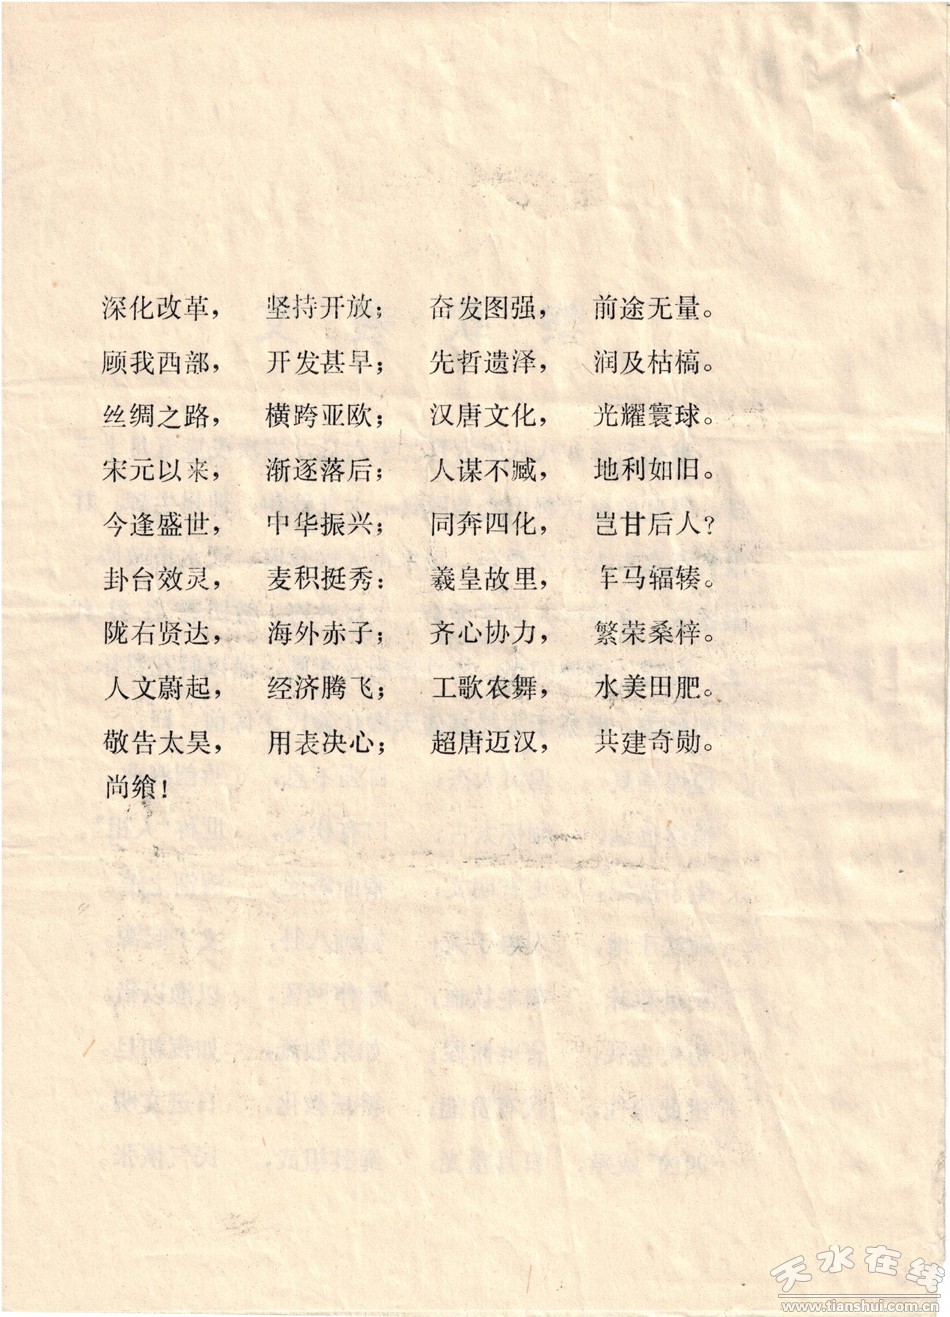 深化改革， 坚持开放； 奋发图强， 前途无量。
顾我西部， 开发甚早； 先哲遗泽， 润及枯槁。
丝绸之路， 横跨亚欧； 汉唐文化， 光耀寰球。
宋元以来， 渐逐落后； 人谋不臧， 地利如旧。
今逢盛世， 中华振兴； 同奔四化， 岂甘后人?
卦台效灵， 麦积挺秀: 羲皇故里， 车马辐辏。
陇右贤达， 海外赤子； 齐心协力， 繁荣桑梓。
人文蔚起， 经济腾飞； 工歌农舞， 水美田肥。
敬告太昊， 用表决心； 超唐迈汉， 共建奇勋。
尚飨!
天水在线
www.tianshui.com.cn